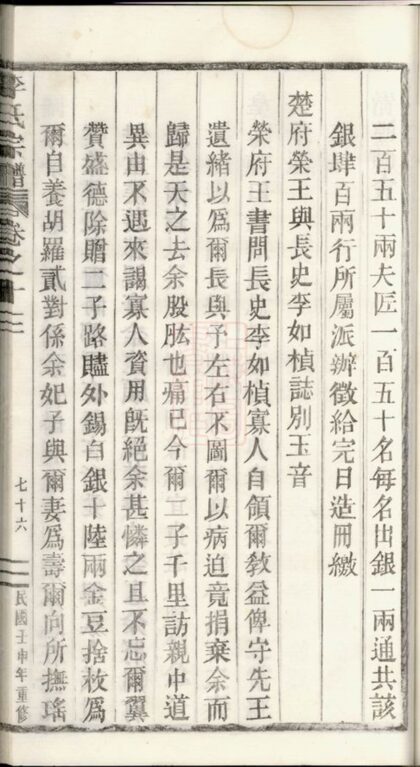 二百五十兩夫匠一百五十名每名出銀一兩通共該
銀肆百兩行所屬派辦徵給完日造冊繳
楚府榮王與長史李如楨誌別玉音
榮府王書問長史李如楨寡人自領爾教益俾守先王
遺緒以爲爾長與予左右不圖爾以病迫竟捐棄余而
歸是天之去余股肱也痛已今爾二子千里訪親中道
異由不遇來謁寡人資用旣絕余甚憐之且不忘爾翼
贊盛德除贈二子路贐外錫白銀十陸兩金豆捨枚爲
爾自養胡羅貳對係余妃子與爾妻爲壽爾向所撫瑤
李氏宗譜 卷之十二 七十六 民國壬申年重修